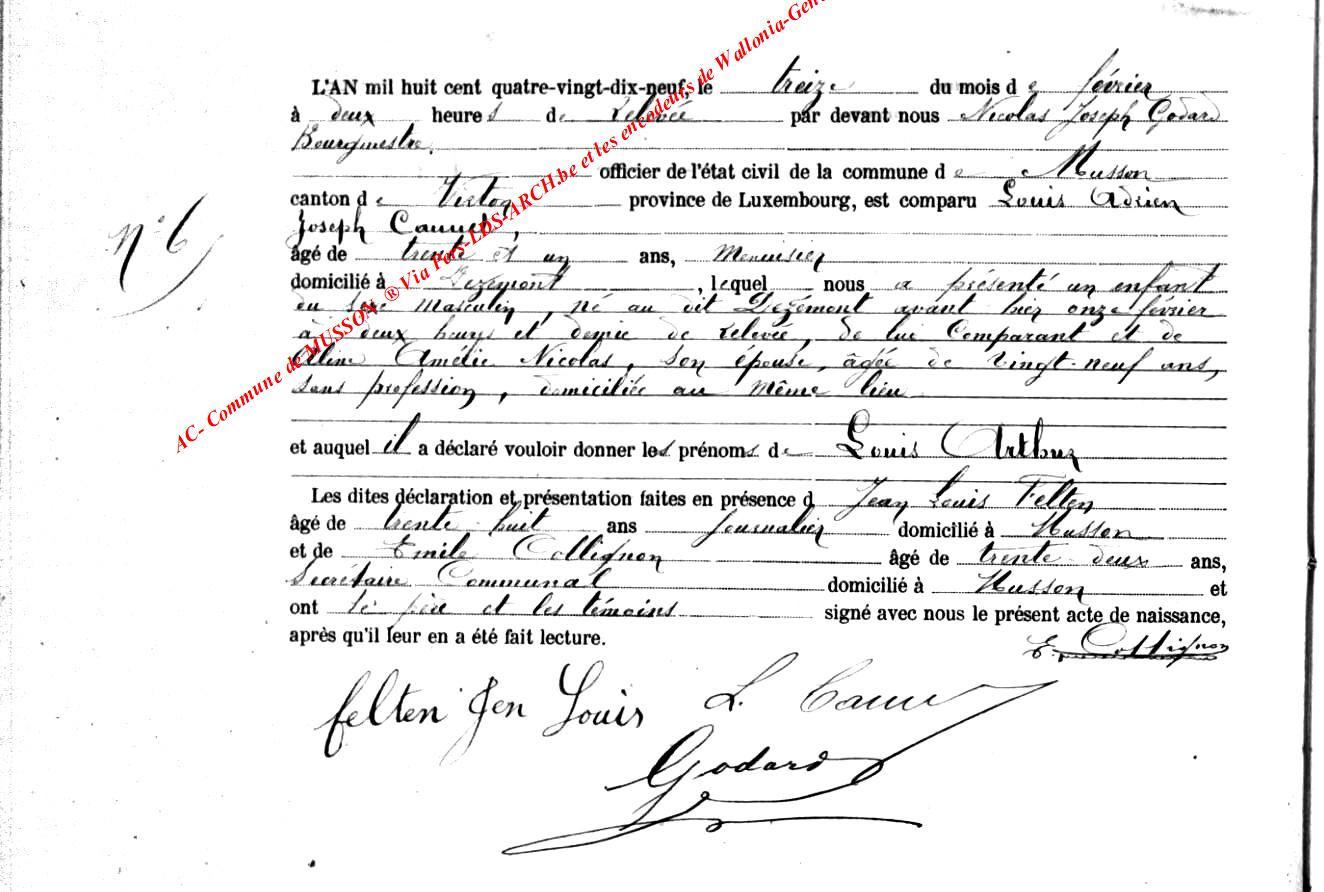 L'AN mil huit cent quatre-vingt-dix-neuf, le treize du mois de février
à deux heures de relevée par devant nous Nicolas Joseph Godard
Bourgmestre,
officier de l'état civil de la commune de Musson
canton de Virton province de Luxembourg, est comparu Louis Adrien
Joseph
âgé de trente et un ans, Menuisier
domicilié à , lequel nous a présenté un enfant
du sexe masculin, né au dit avant hier onze février
à deux heures et demie de relevée, de lui Comparant et de
Aline Amélie Nicolas, son épouse, âgée de vingt-neuf ans,
sans profession, domiciliée au même lieu
et auquel il a déclaré vouloir donner les prénoms de Louis Arthur
Les dites déclaration et présentation faites en présence d Jean Louis Felten
âgé de trente huit ans journalier domicilié à Musson
et de Emile Collignon âgé de trente deux ans,
Secrétaire Communal domicilié à Musson et
ont le père et les témoins signé avec nous le présent acte de naissance,
après qu'il leur en a été fait lecture.
E. Collignon
felten Jen Louis L.
Godard
N° 6
AC- Commune de MUSSON ® Via Pers-LDS-ARCH.be et les encodeurs de Wallonia-Gen